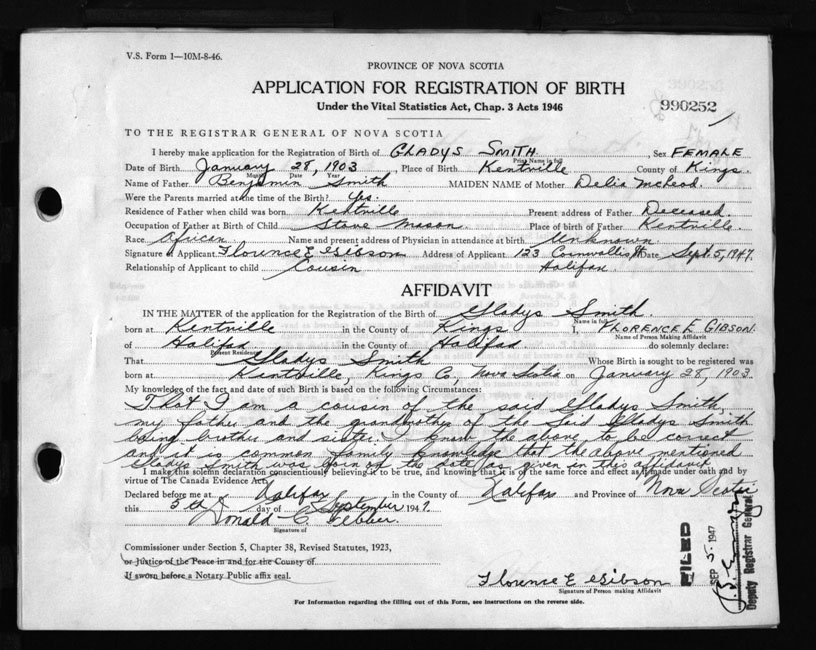 V.S. Form 1—10M-8-46.
PROVINCE OF NOVA SCOTIA
APPLICATION FOR REGISTRATION OF BIRTH
Under the Vital Statistics Act, Chap. 3 Acts 1946
990252
TO THE REGISTRAR GENERAL OF NOVA SCOTIA
I hereby make application for the Registration of Birth of GLADYS SMITH, Sex FEMALE
Print Name in full
Date of Birth January 28, 1903, Place of Birth Kentville County of Kings.
Month Date Year
Name of Father Benjamin Smith MAIDEN NAME of Mother Delia McLeod.
Were the Parents married at the time of the Birth? Yes.
Residence of Father when child was born Kentville Present address of Father Deceased.
Occupation of Father at Birth of Child Stone Mason. Place of birth of Father Kentville.
Race African Name and present address of Physician in attendance at birth Unknown
Signature of Applicant Florence E Gibson Address of Applicant 123 Cornwallis St Date Sept. 5, 1947.
Relationship of Applicant to child Cousin Halifax.
AFFIDAVIT
IN THE MATTER of the application for the Registration of the Birth of Gladys Smith.
Name in full
born at Kentville in the County of Kings I, FLORENCE E GIBSON.
Name of Person Making Affidavit
of Halifax in the County of Halifax do solemnly declare:
Present Residence
That Gladys Smith Whose Birth is sought to be registered was
born at Kentville, Kings Co, Nova Scotia on January 28, 1903
My knowledge of the fact and date of such Birth is based on the following Circumstances:
That I am a cousin of the said Gladys Smith,
my father and the grandmother of the said Gladys Smith
being brother and sister. I know the above to be correct
and it is common family knowledge that the above mentioned
Gladys Smith was born on the date as given in this affidavit
I make this solemn declaration conscientiously believing it to be true, and knowing that it is of the same force and effect as if made under oath and by
virtue of The Canada Evidence Act,
Declared before me at Halifax in the County of Halifax and Province of Nova Scotia
this 5th day of September 1947.
Donald C
Signature of
Commissioner under Section 5, Chapter 38, Revised Statutes, 1923,
or Justice of the Peace in and for the County of
If sworn before a Notary Public affix seal.
Florence E Gibson
Signature of Person making Affidavit
FILED
SEP 5 1947
Deputy Registrar General
For Information regarding the filling out of this Form, see instructions on the reverse side.